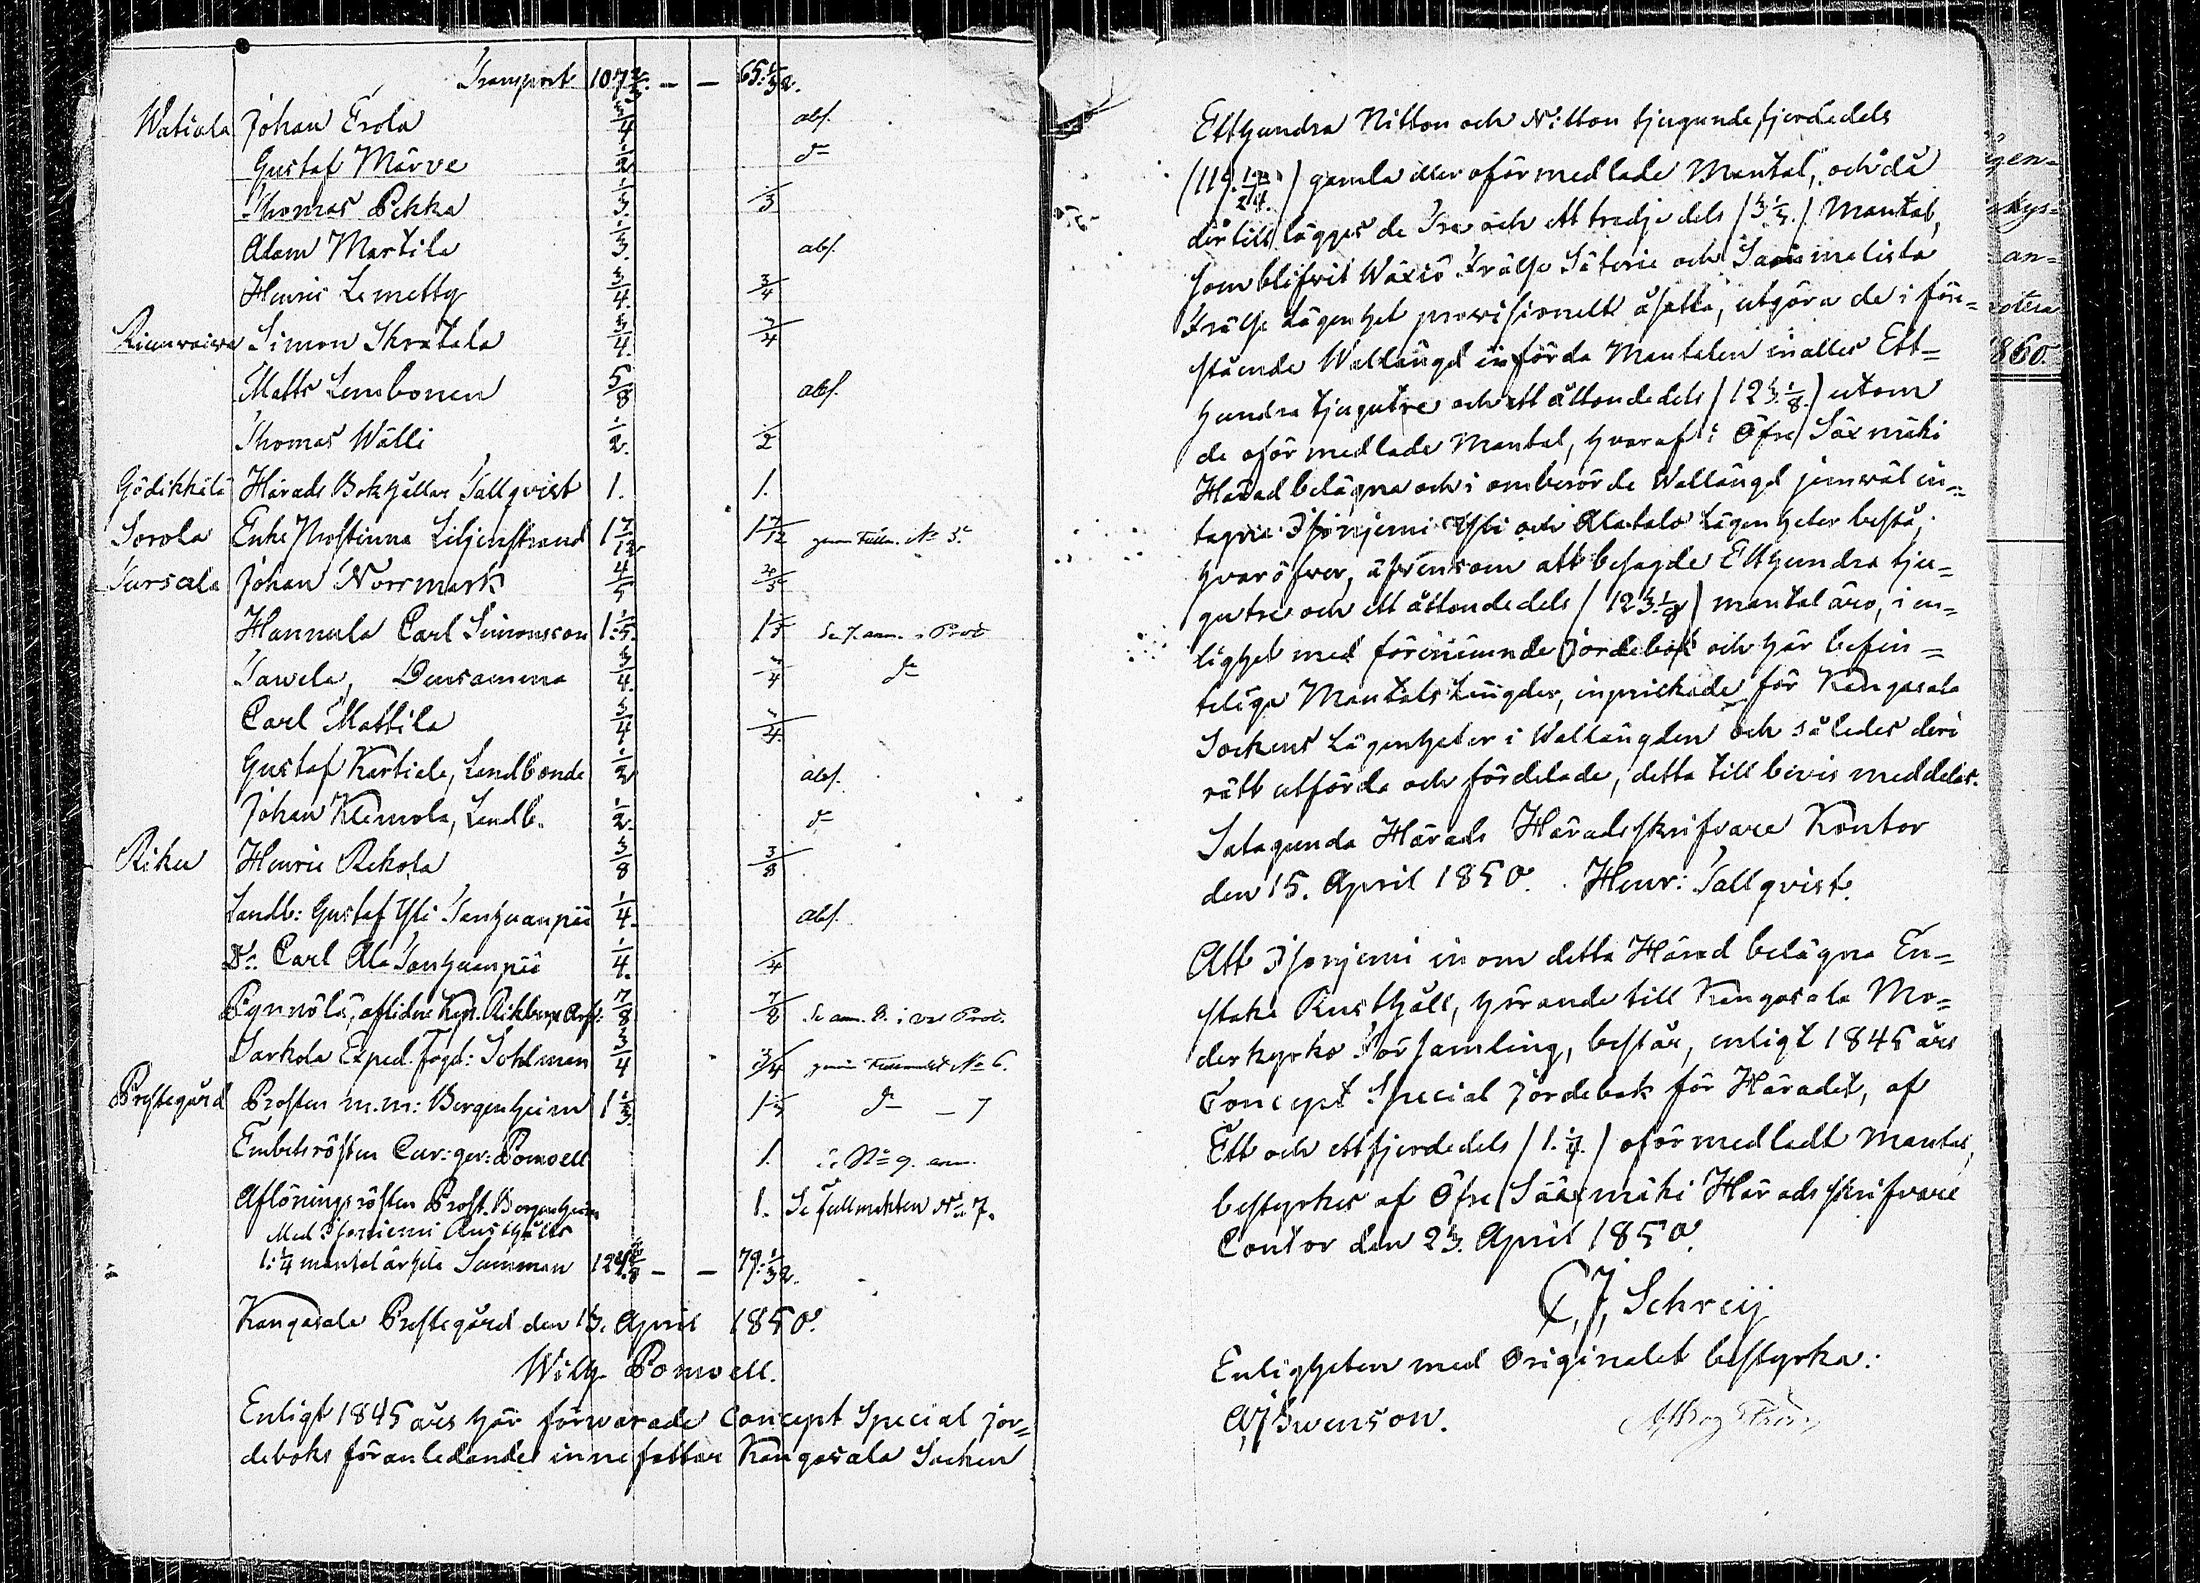 Transport 107 2/3. – – 65. 1/32.
Watiala Johan Erola 3/4 abs.
Gustaf Märve 1/2 do
Thomas Pekka 1/3. 1/3
Adam Martila 1/3. abs.
Henric Lemetty 3/4. 3/4
Simon Skratala 3/4. 3/4
Matts Lembonen 5/8 abs.
Thomas Wälli 1/2. 1/2
Härads Bokhållar Tallqvist 1. 1.
Sorola Enke Prostinna Liljenstrand 1 7/12 1 7/12 genom Fullm. No 5.
Tursala Johan Norrmark 4/5 4/5
Hannula Carl Simonsson 1. 1/5. 1 1/5 Se 7. anm. i Prot.
Tawela, Densamma 3/4. 3/4 do
Carl Mattila 3/4 3/4.
Gustaf Kartiala, Landbonde 1/2 abs.
Johan Klemola, Landb. 1/2. do
Riku Henric Rekola 3/8 3/8
Landb: Gustaf Yli Tanhuanpää 1/4. abs.
Do: Carl Ala Tanhuanpää 1/4. 1/4
Pynnölä, aflidne Kapt. 7/8 7/8 Se anm. 8. i Prot.
Tarkola Exped. Fogd: Sohlman 3/4 3/4 genom Fullmakt No 6.
Prestegård Prosten m.m: Bergenheim 1 1/3. 1 1/3 do – 7
Embetsrösten Cur: ger: Ponwell 1. Se No 9. anm.
Aflönings rösten Prost. Bergenheim 1. Se fullmakten No 7.
Med Isoniemi Rusthålls
1. 1/4 mantal är hela Summan 124. 3/8 – – 79. 1/32.
Kangasala Prestegård den 13. April 1850.
Wilh. Ponwell.
Enligt 1845 års här förwarade Concept Special jor=
deboks föranledande innefattar Kangasala Socken
Etthundra Nitton och Nitton tjugundefjerdedels
(119. 19/24.) gamla eller oförmedlade Mantal, och då
dertill lägges de Tre och ett tredjedels (3 1/3.) Mantal,
som blifvit Wäxiö Frälse Säterie och
Frälse Lägenhet provisionelt åsatta, utgöra de i före=
stående Wallängd införda Mantalen inalles Ett=
hundra tjugutre och ett åttondedels (123. 1/8.) utom
de oförmedlade Mantal, hvaraf i Öfre Säxmäki
Härad belägna och i omberörde Wallängd jemwäl in=
tagne Isonjemi Yli och Alatalo Lägenheter bestå;
hvaröfver, äfvensom att besagde Etthundra tju=
gutre och ett åttondedels (123. 1/8) mantal äro, i en=
lighet med förenämnde Jordebok och här befin=
teliga Mantals Längder, inprickade för Kangasala
Sockens Lägenheter i Wallängden och således deri
rätt utförda och fördelade, detta till bevis meddelas.
Satagunda Härads Häradsskrifvare Kontor
den 15. April 1850. Henr: Tallqvist.
Att Isonjemi inom detta Härad belägna En=
staka Rusthåll, hörande till Kangasala Mo=
derkyrko Församling, består, enligt 1845 års
Concept Special Jordebok för Häradet, af
Ett och ettfjerdedels (1. 1/4.) oförmedladt Mantal,
bestyrkes af Öfre Sääxmäki Häradsskrifvare
Contor den 23. April 1850.
C, J, Schreij
Enligheten med Originalet bestyrka:
A, J Swenson.